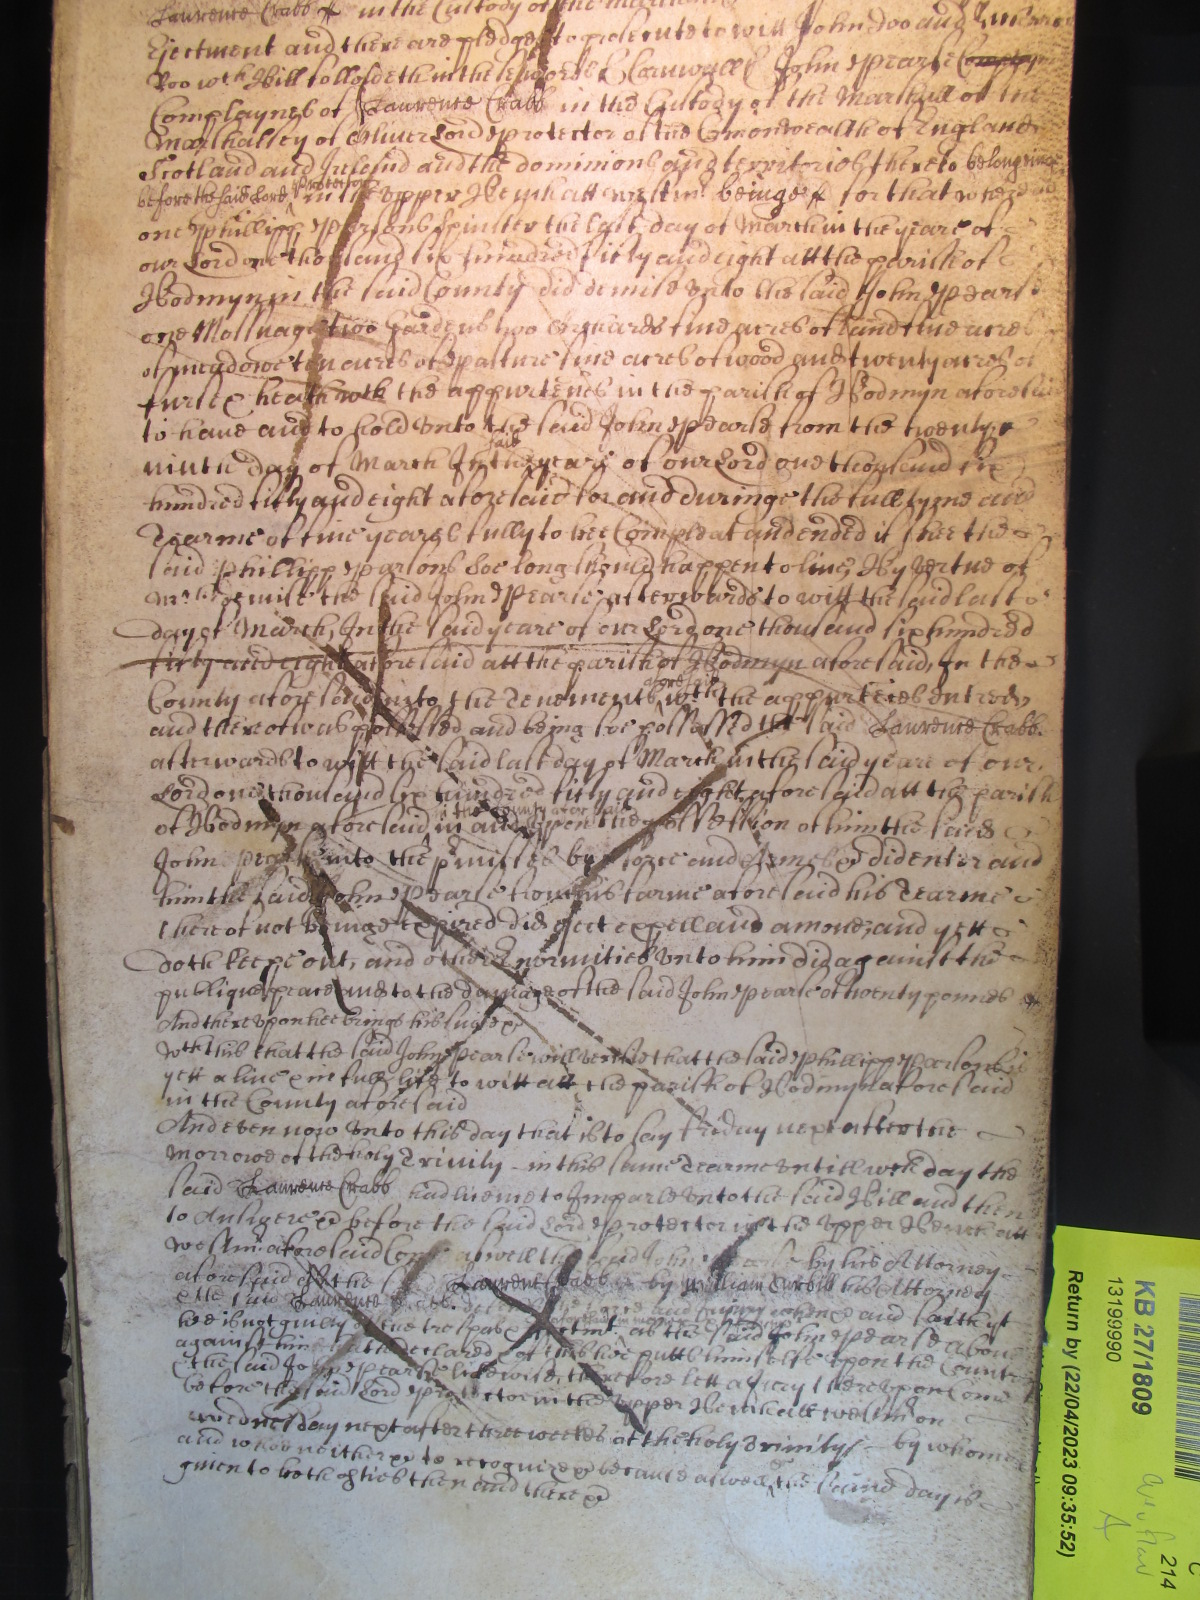 Laurence Crabb in the Custody of the
Ejectment and there are pledges to prosecute to witt John Doo and
Roo wth Bill followeth in these words Cornwall John Pearse
Complaynes of Laurence Crabb in the Custody of the Marshall of the
Marshallsey of Oliver Lord Protector of the Comonwealth of England
Scotland and Ireland and the dominions and territories thereto belonginge
before the said Lord Protector in the upper Bench att westm: beinge for that whereas
one Phillipp Parsons Spinster the last day of March in the yeare of
our Lord one thousand six hundred fifty and eight att the parish of
Bodmyn in the said County did demise unto the said John Pearse
one Messuage two Gardens two Orchards five acres of land five acres
of meadowe ten acres of pasture five acres of wood and twenty acres of
furse & heath with the appurtences in the parish of Bodmyn aforesaid
to have and to hold unto the said John Pearse from the twenty
ninth day of March In the said yeare of our Lord one thousand six
hundred fifty and eight aforesaid for and duringe the full tyme and
Tearme of five yeares fully to bee Compleat and ended if shee the
said Phillipp Parsons soe long should happen to live, By vertue of
wch demise the said John Pearse afterwards to witt the said last
day of March, In the said yeare of our Lord one thousand six hundred
fifty and eight aforesaid att the parish of Bodmyn aforesaid, In the
County aforesaid into the Tenements aforesaid wth the appurtences entred
and thereof was possessed and being soe possessed the said Laurence Crabb
afterwards to witt the said last day of March in the said yeare of our
Lord one thousand six hundred fifty and eight aforesaid att the parish
of Bodmyn aforesaid in the County aforesaid in and uppon the possession of him the said
John Pearse into the pmisses by force and Armes &c did enter and
him the said John Pearse from his farme aforesaid his Tearme
thereof not beinge expired did eject expell and amove, and yett
doth keepe out, and other Enormities unto him did against the
publique peace and to the damage of the said John Pearse of twenty pounds
And thereupon hee brings his suite &c
Wth this that the said John Pearse will verifie that the said Phillipp Parsons is
yett alive & in full life to witt att the parish of Bodmyn aforesaid
in the County aforesaid
And even now unto this day that is to say Friday next after the
morrowe of the holy Trinity in this same Tearme untill wch day the
said Laurence Crabb had licence to Imparle unto the said Bill and then
to Answere &c before the said Lord Protector in the upper Bench att
westm: aforesaid Come aswell the said John Pearse by his Attorney
aforesaid as the said Laurence Crabb by William his Attorney
& the said Laurence Crabb defends the force and Injury when &c and saith yt
hee is not guilty of the trespas & Ejectmt as the said John Pearse above
against him hath declared & of this hee putts himselfe upon the Countr
& the said John Pearse likewise, therefore lett a Jury thereupon Come
before the said Lord Protector in the Upper Bench att westm: on
wednesday next after three weekes of the holy Trinity by whome
and whoe neither &c to recognize &c because aswell &c the same day is
given to both pties then and there &c
KB 27/1809
13199990
Return by (22/04/2023 09:35:52)
214